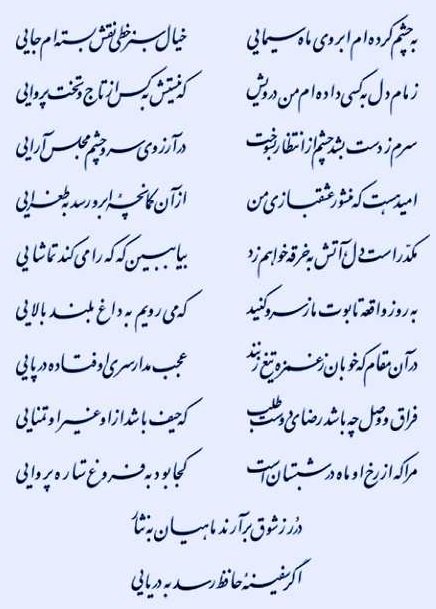 به چشم کرده‌ام ابروی ماه سیمایی خیال سبز خطی نقش بسته‌ام جایی
زمام دل به کسی داده‌ام من درویش که نیستش به کس از تاج و تخت پروایی
سرم ز دست بشد چشم از انتظار بسوخت در آرزوی سر و چشم مجلس آرایی
امید هست که منشور عشقبازی من از آن کمانچهٔ ابرو رسد به طغرایی
مکدّر است دل آتش به خرقه خواهم زد بیا ببین که که را می‌کند تماشایی
به روز واقعه تابوت ما ز سرو کنید که می‌رویم به داغ بلند بالایی
در آن مقام که خوبان ز غمزه تیغ زنند عجب مدار سری اوفتاده در پایی
فراق و وصل چه باشد رضای دوست طلب که حیف باشد از او غیر او تمنایی
مرا که از رخ او ماه در شبستان است کجا بود به فروغ ستاره پروایی
دُرر ز شوق برآرند ماهیان به نثار
اگر سفینهٔ حافظ رسد به دریایی